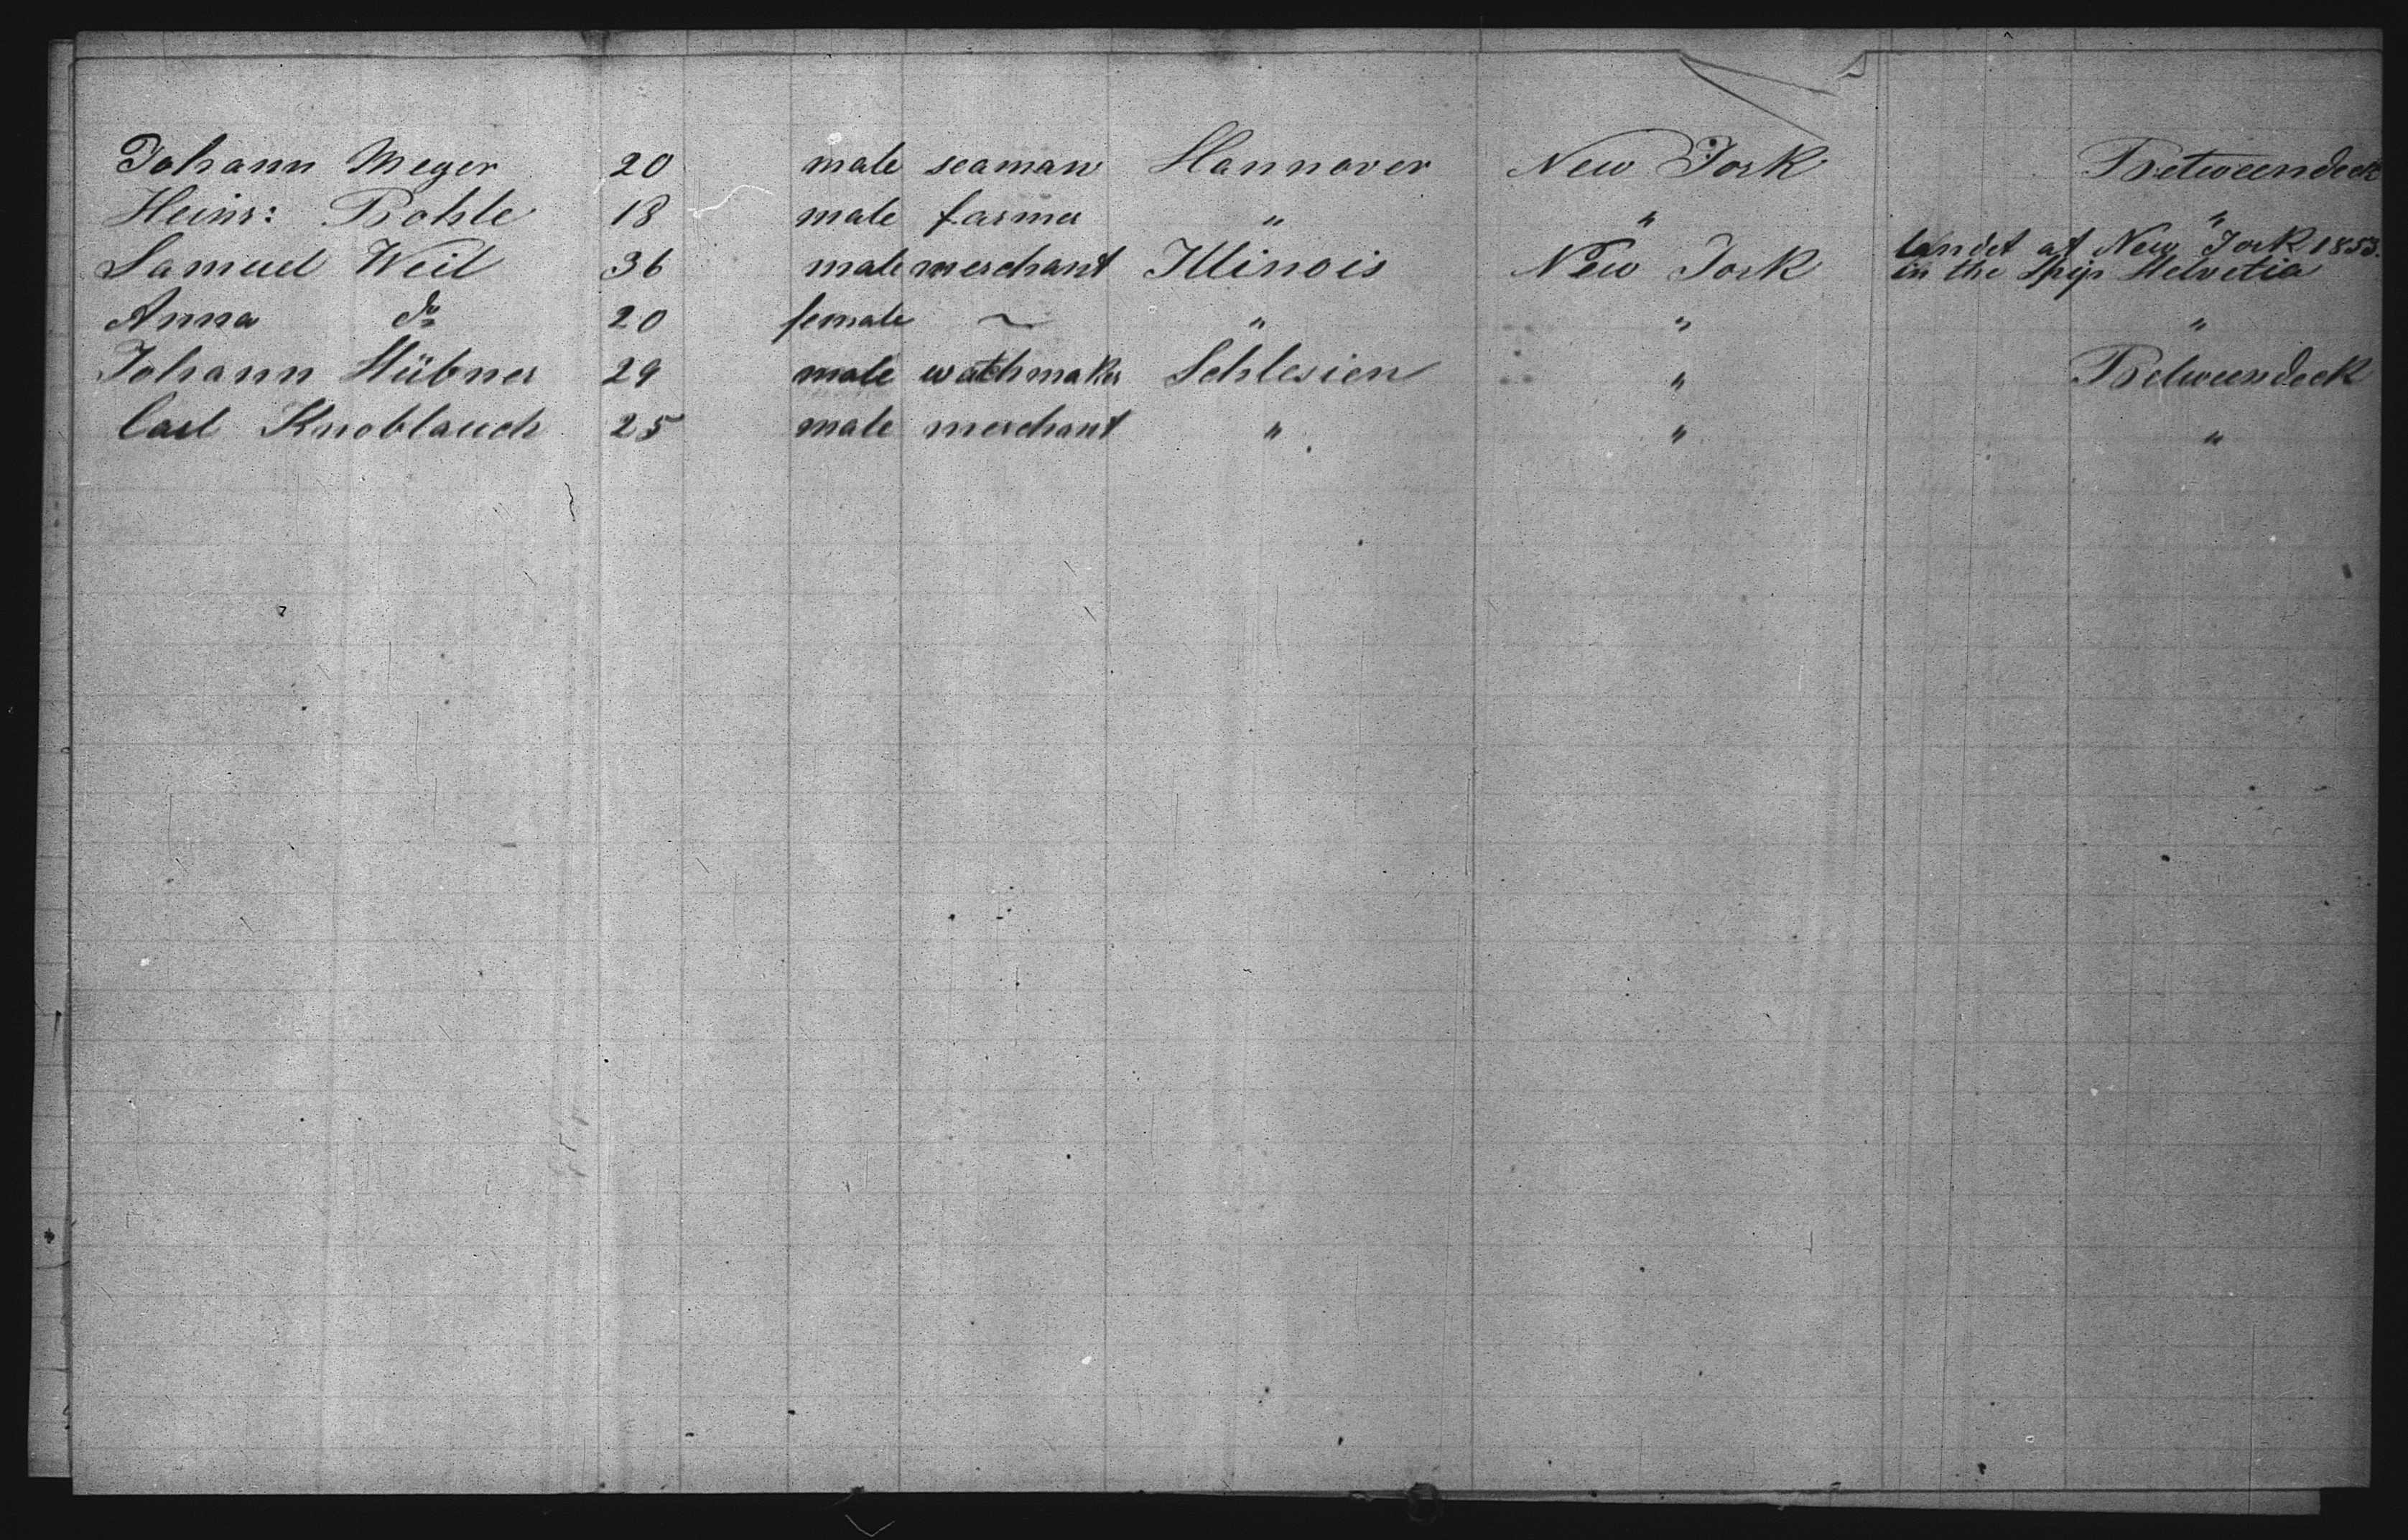 Johann Meyer 20 male seaman Hannover New York Betweendeck
Heinr: Bohle 18 male farmer " " "
Samuel Weil 36 male merchant Illinois New York landet at New York 1853. in the Ship Helvetia
Anna do 20 female ~ " " "
Johann Hübner 29 male wathmaker Schlesien " Betweendeck
Carl Knoblauch 25 male merchant " " "